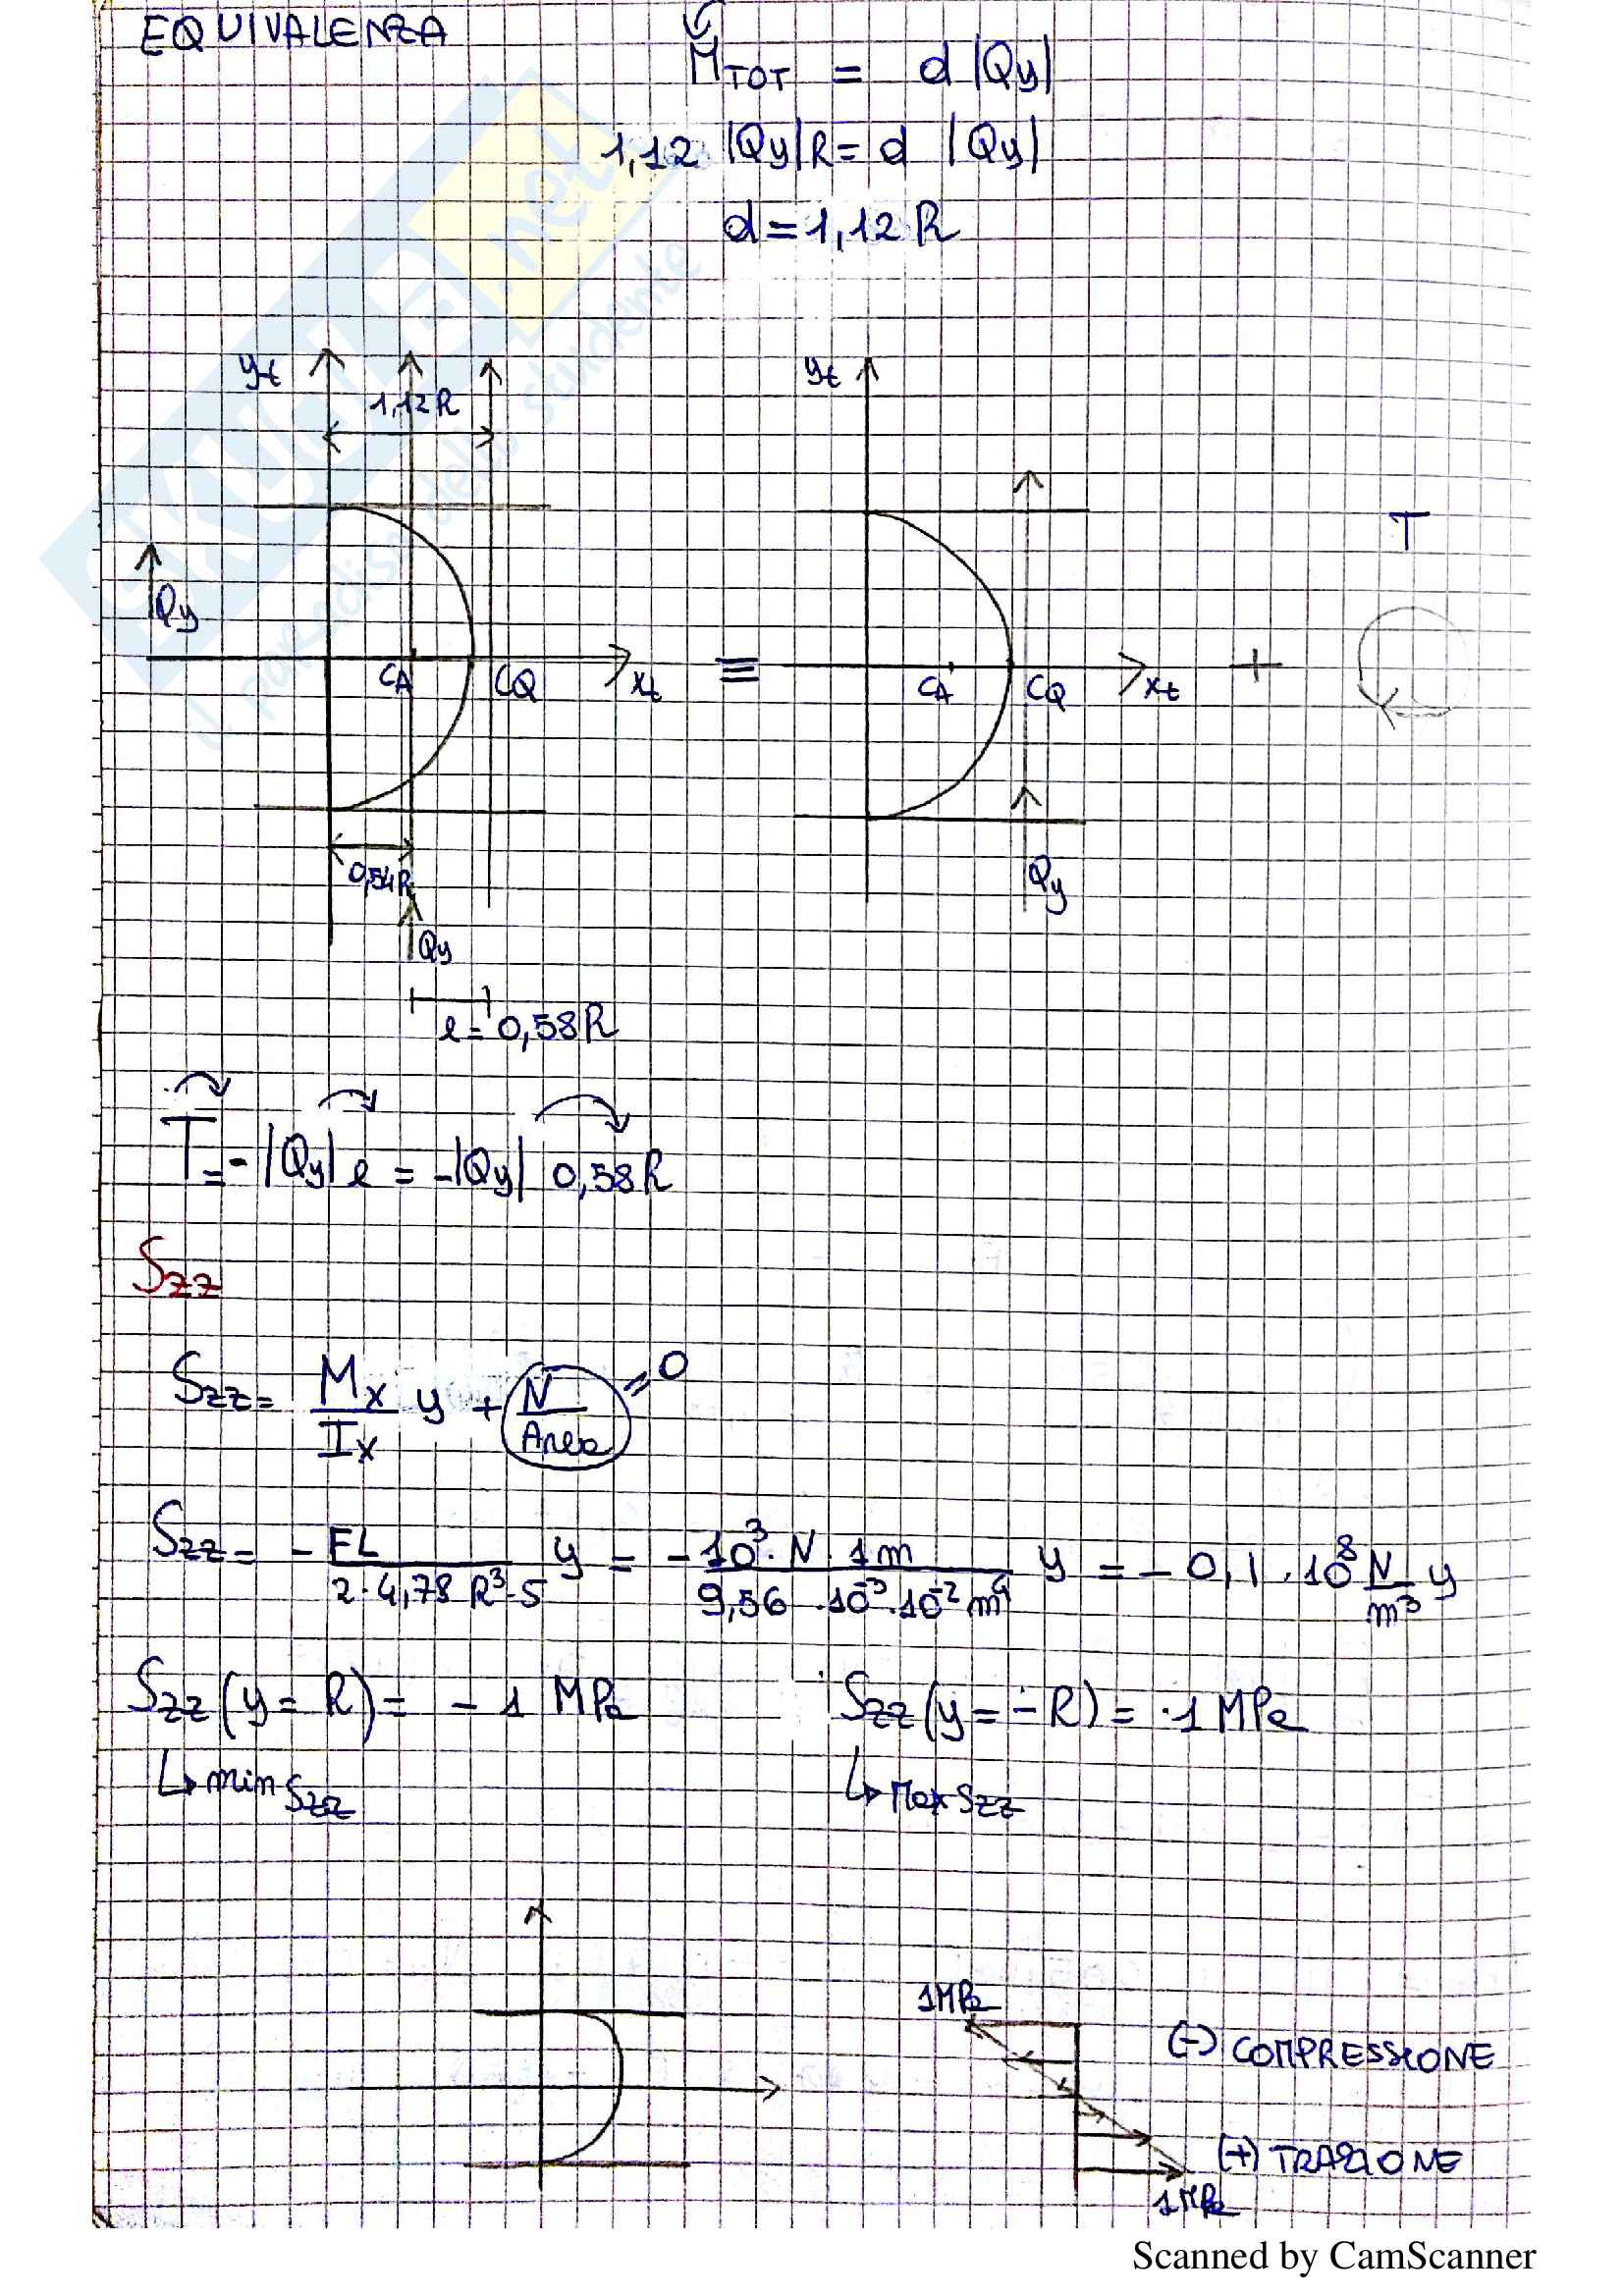 EQUIVALENZA
M_TOT = d |Qy|
1,12 |Qy|R = d |Qy|
d = 1,12 R
SKUOLA.net
il paradiso dello studente
yt
1,12R
Qy
CA
CQ
xt
0,54R
Qy
e = 0,58R
≡
yt
CA
CQ
xt
Qy
+
T
T = - |Qy| e = -|Qy| 0,58R
Szz
Szz = Mx/Ix y + N/Area = 0
Szz = - FL/(2·4,78 R³·S) y = - 10³·N·1m/(9,56·10⁻³·10⁻² m⁴) y = - 0,1·10⁸ N/m³ y
Szz (y = R) = - 1 MPa
Szz (y = -R) = 1 MPa
↳ min Szz
↳ Max Szz
1MPa
(-) COMPRESSIONE
(+) TRAZIONE
1MPa
Scanned by CamScanner